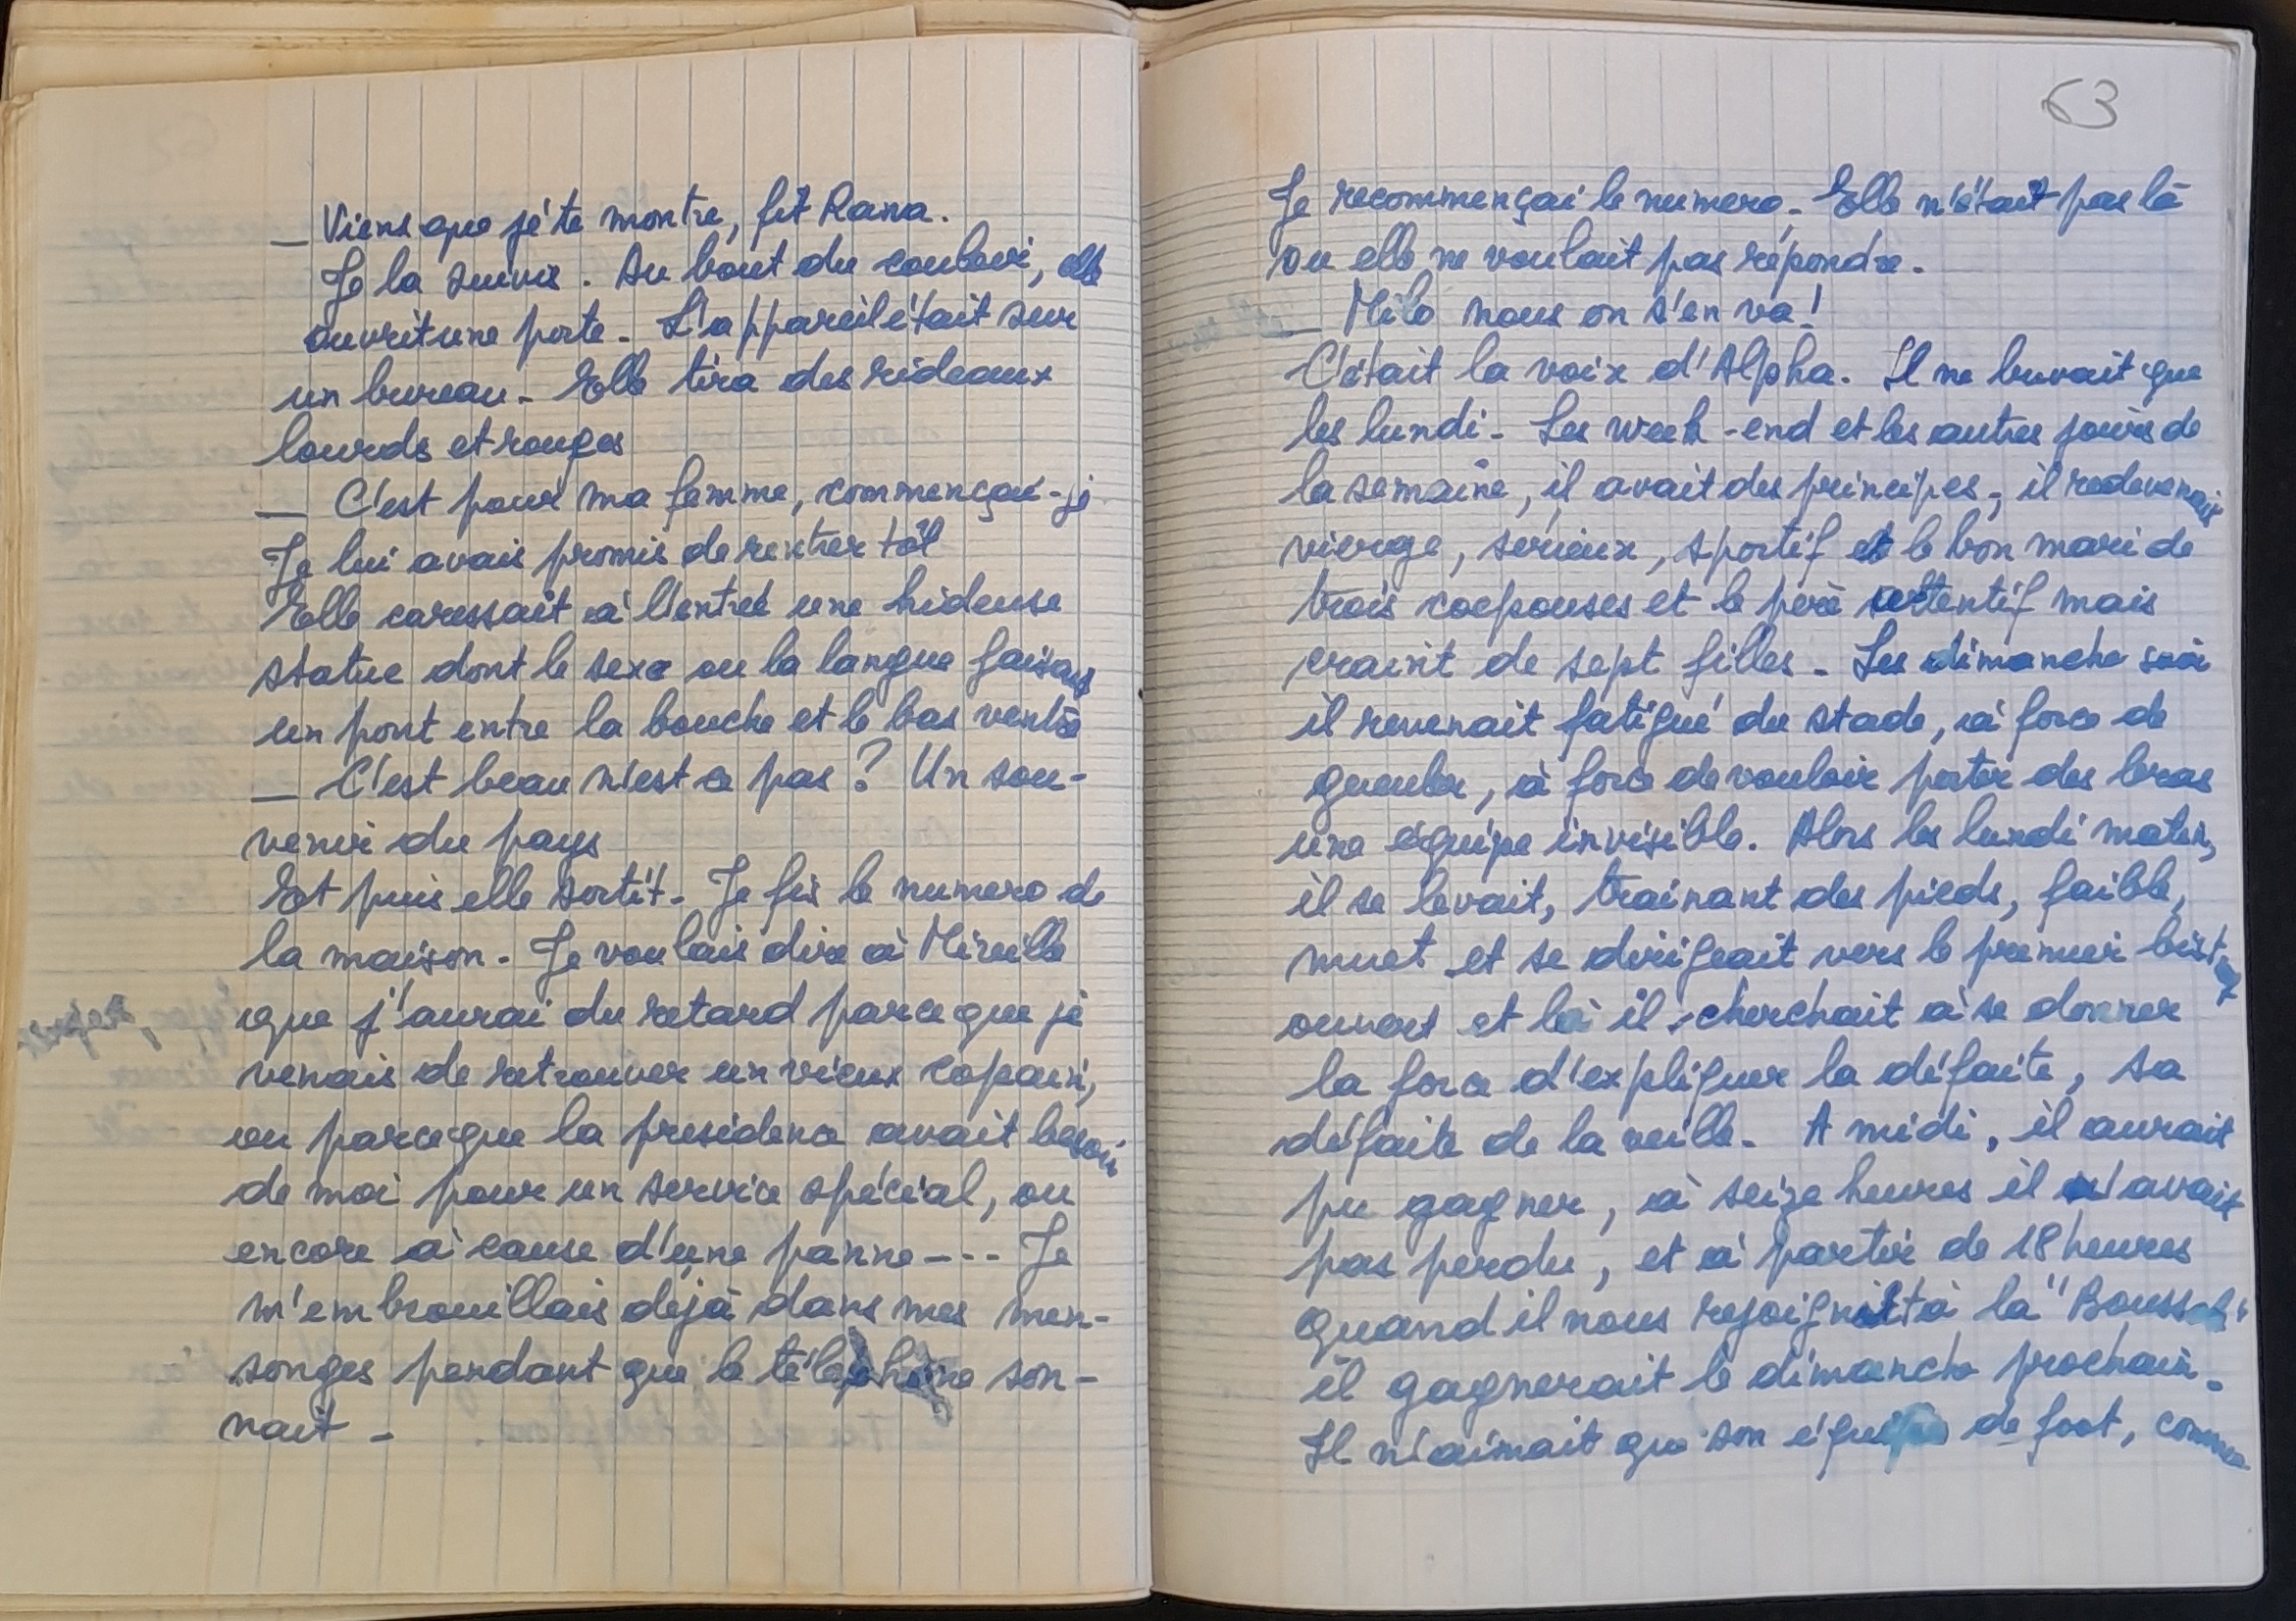 _ Viens que je te montre, fit Rana.
Je la suivis. Au bout du couloir, elle
ouvrit une porte. L'appareil était sur
un bureau. Elle tira des rideaux
lourds et rouges
_ C'est pour ma femme, commençai-je
Je lui avais promis de rentrer tôt
Elle caressait à l'entrée une hideuse
statue dont le sexe ou la langue faisait
un pont entre la bouche et le bas ventre
_ C'est beau n'est ce pas ? Un sou-
venir du pays
Et puis elle sortit. Je fis le numero de
la maison. Je voulais dire à Mireille
que j'aurai du retard parce que je
venais de retrouver un vieux copain,
ou parceque la presidence avait besoin
de moi pour un service spécial, ou
encore à cause d'une panne--- Je
m'embrouillais dejà dans mes men-
songes pendant que le téléphone son-
nait -
63
Je recommençai le numero. Elle n'était pas là
ou elle ne voulait pas répondre.
_ Milo nous on s'en va!
C'était la voix d'Alpha. Il ne buvait que
les lundi. Les week-end et les autres jours de
la semaine, il avait des principes, il redevenait
vierge, sérieux, sportif et le bon mari de
trois coepouses et le père attentif mais
craint de sept filles. Les dimanche soir
il revenait fatigué du stade, à force de
gueuler, à force de vouloir porter des bras
une équipe invisible. Alors les lundi matin,
il se levait, trainant des pieds, faible,
muet et se dirigeait vers le premier bistrot
ouvert et là il cherchait à se donner
la force d'expliquer la défaite, sa
défaite de la veille. A midi, il aurait
pu gagner, à seize heures il n'avait
pas perdu, et à partir de 18 heures
quand il nous rejoignit à la "Boussole"
il gagnerait le dimanche prochain.
Il n'aimait que son équipe de foot, comme